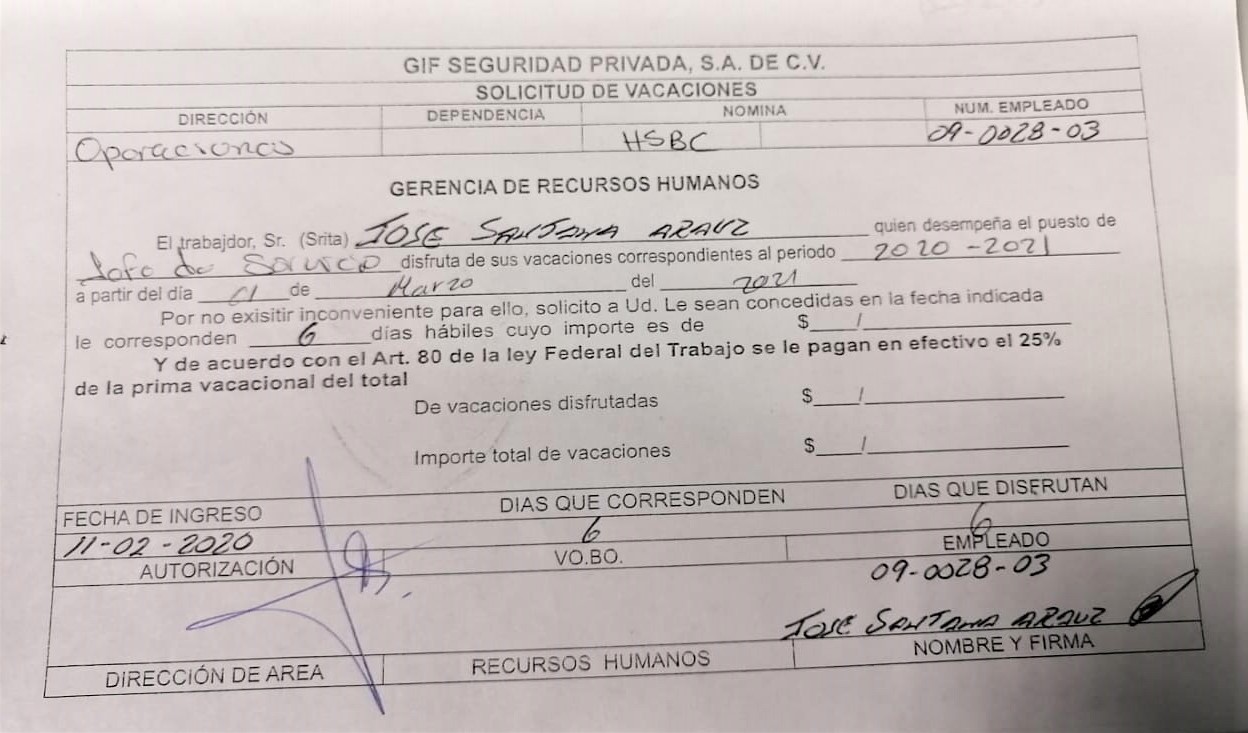 GIF SEGURIDAD PRIVADA, S.A. DE C.V.
SOLICITUD DE VACACIONES
DIRECCIÓN DEPENDENCIA NOMINA NUM. EMPLEADO
Operaciones HSBC 09-0028-03
GERENCIA DE RECURSOS HUMANOS
El trabajdor, Sr. (Srita) JOSE SANTANA ARAUZ quien desempeña el puesto de
Jefe de Servicio disfruta de sus vacaciones correspondientes al periodo 2020-2021
a partir del día 01 de Marzo del 2021
Por no exisitir inconveniente para ello, solicito a Ud. Le sean concedidas en la fecha indicada
le corresponden 6 días hábiles cuyo importe es de $ /
Y de acuerdo con el Art. 80 de la ley Federal del Trabajo se le pagan en efectivo el 25%
de la prima vacacional del total
De vacaciones disfrutadas $ /
Importe total de vacaciones $ /
FECHA DE INGRESO DIAS QUE CORRESPONDEN DIAS QUE DISFRUTAN
11-02-2020 6 6
AUTORIZACIÓN VO.BO. EMPLEADO
09-0028-03
JOSE SANTANA ARAUZ
DIRECCIÓN DE AREA RECURSOS HUMANOS NOMBRE Y FIRMA